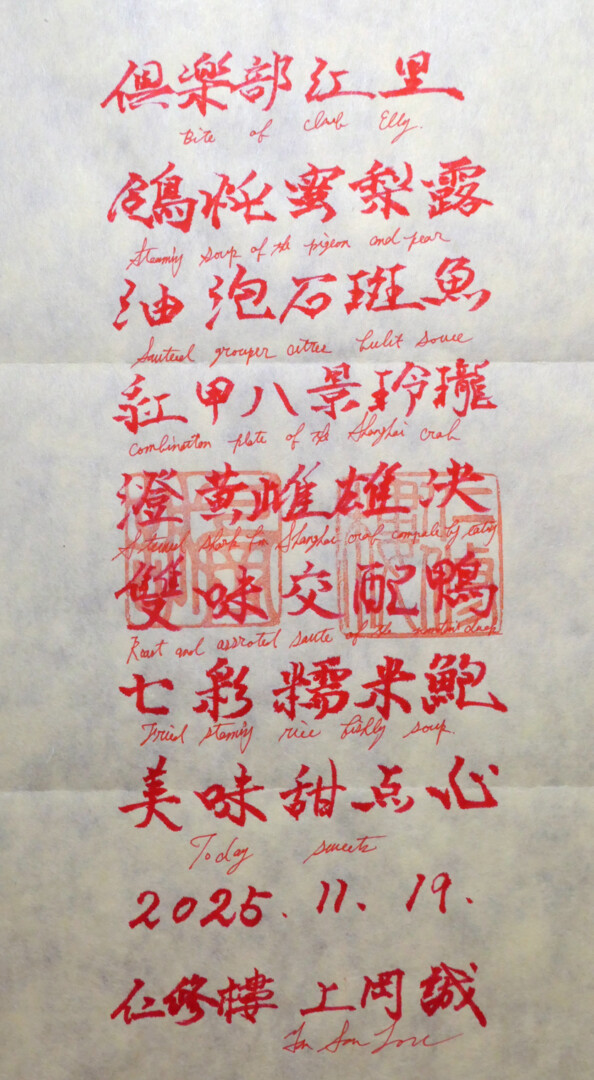 倶楽部江里
Bite of club Elly.
鴿炖蜜梨露
Steaming soup of the pigeon and pear
油泡石斑魚
Sauteed grouper citrus sauce
紅甲八景玲瓏
Combination plate of the Shanghai crab
澄黄雌雄決
Shanghai crab by
雙味交配鴨
Roast and assroted saute of the duck
七彩糯米鮑
Fried steaming rice soup.
美味甜点心
Today sweets
2025.11.19.
仁修樓 上岡誠